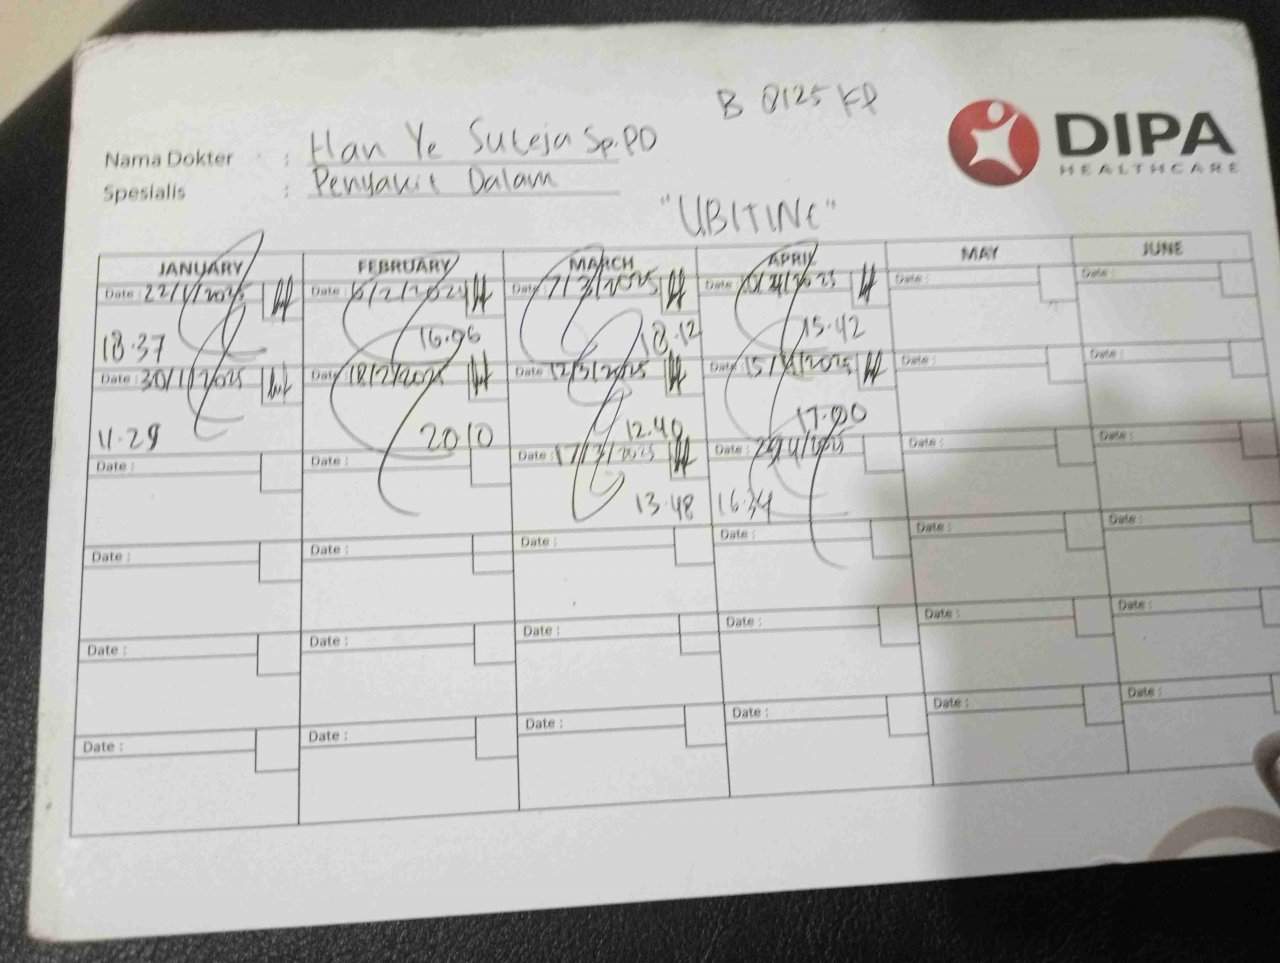 B 0125 KP
DIPA
HEALTHCARE
Nama Dokter : Han Ye Suteja Sp.PD
Spesialis : Penyakit Dalam
"UBITINC"
JANUARY FEBRUARY MARCH APRIL MAY JUNE
Date : 22/1/2025 Date : /2/2024 Date : 7/3/2025 Date : Date : Date :
18.37 16.06 18.12 15.42
Date : 30/1/2025 Date : 18/2/2025 Date : 12/3/2025 Date : 15/4/2025 Date : Date :
11.29 20 10 12.40 17.00
Date : Date : Date : 17/3/2025 Date : 29/4/2025 Date : Date :
13.48 16.34
Date : Date : Date : Date : Date : Date :
Date : Date : Date : Date : Date : Date :
Date : Date : Date : Date : Date : Date :